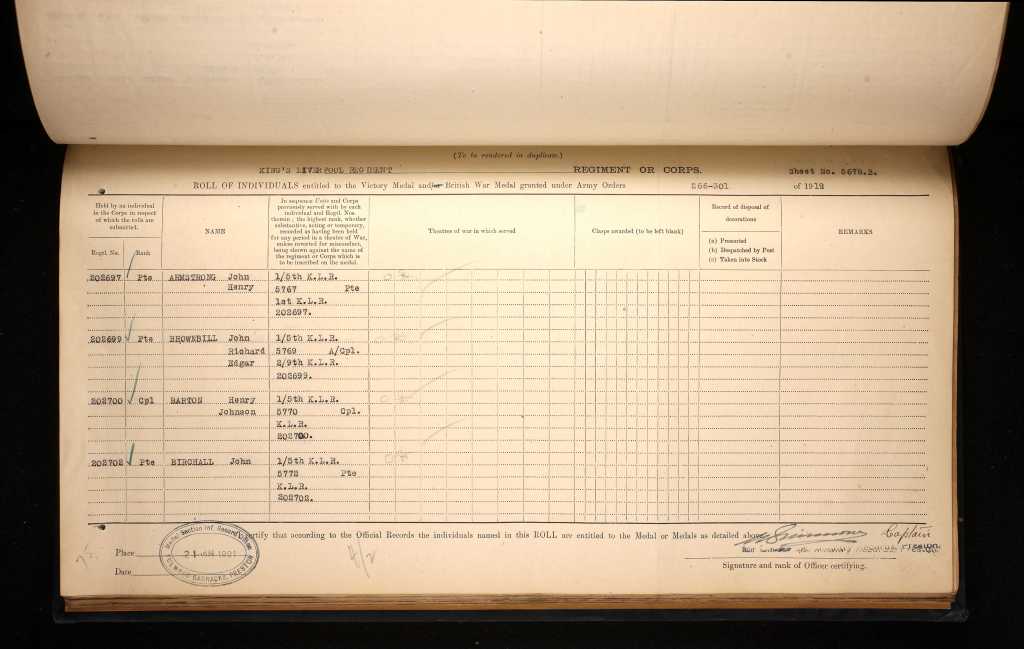 (To be rendered in duplicate.)
KING'S LIVERPOOL REGIMENT REGIMENT OR CORPS. Sheet No. 5678.2.
ROLL OF INDIVIDUALS entitled to the Victory Medal and/or British War Medal granted under Army Orders 266-301 of 1919
Held by an individual in the Corps in respect of which the rolls are submitted.
Regtl. No. Rank
NAME
In sequence Units and Corps previously served with by each individual and Regtl. Nos. therein; the highest rank, whether substantive, acting or temporary, recorded as having been held for any period in a theatre of War, unless reverted for misconduct, being shown against the name of the regiment or Corps which is to be inscribed on the medal.
Theatres of war in which served
Clasps awarded (to be left blank)
Record of disposal of decorations
(a) Presented
(b) Despatched by Post
(c) Taken into Stock
REMARKS
202697 Pte ARMSTRONG John 1/5th K.L.R.
Henry 5767 Pte
1st K.L.R.
202697.
202699 Pte BROWNBILL John 1/5th K.L.R.
Richard 5769 A/Cpl.
Edgar 2/9th K.L.R.
202699.
202700 Cpl BARTON Henry 1/5th K.L.R.
Johnson 5770 Cpl.
K.L.R.
202700.
202702 Pte BIRCHALL John 1/5th K.L.R.
5772 Pte
K.L.R.
202702.
certify that according to the Official Records the individuals named in this ROLL are entitled to the Medal or Medals as detailed above.
Place
Date
Medal Section Inf. Record Office
21 JAN 1921
FULWOOD BARRACKS, PRESTON
Captain
Signature and rank of Officer certifying.